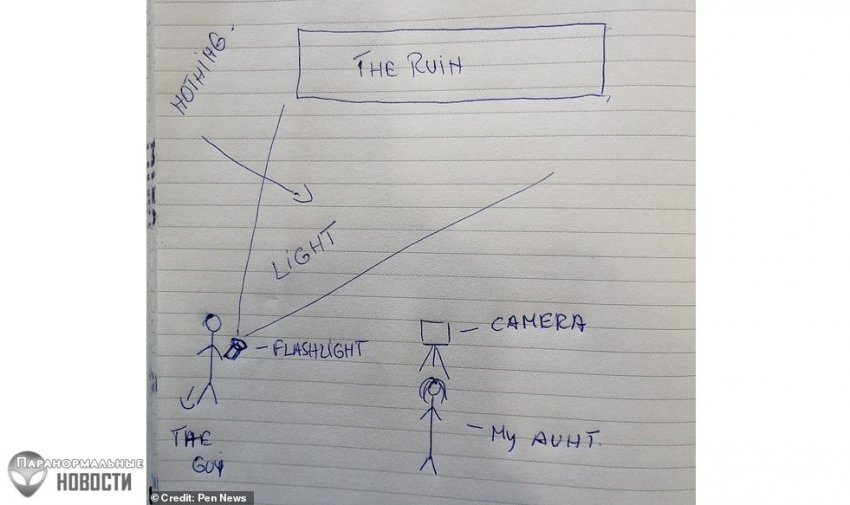 NOTHING.
THE RUIN
LIGHT
CAMERA
FLASHLIGHT
THE
GUY
My AUNT.
ПАРАНОРМАЛЬНЫЕ
НОВОСТИ
© Credit: Pen News